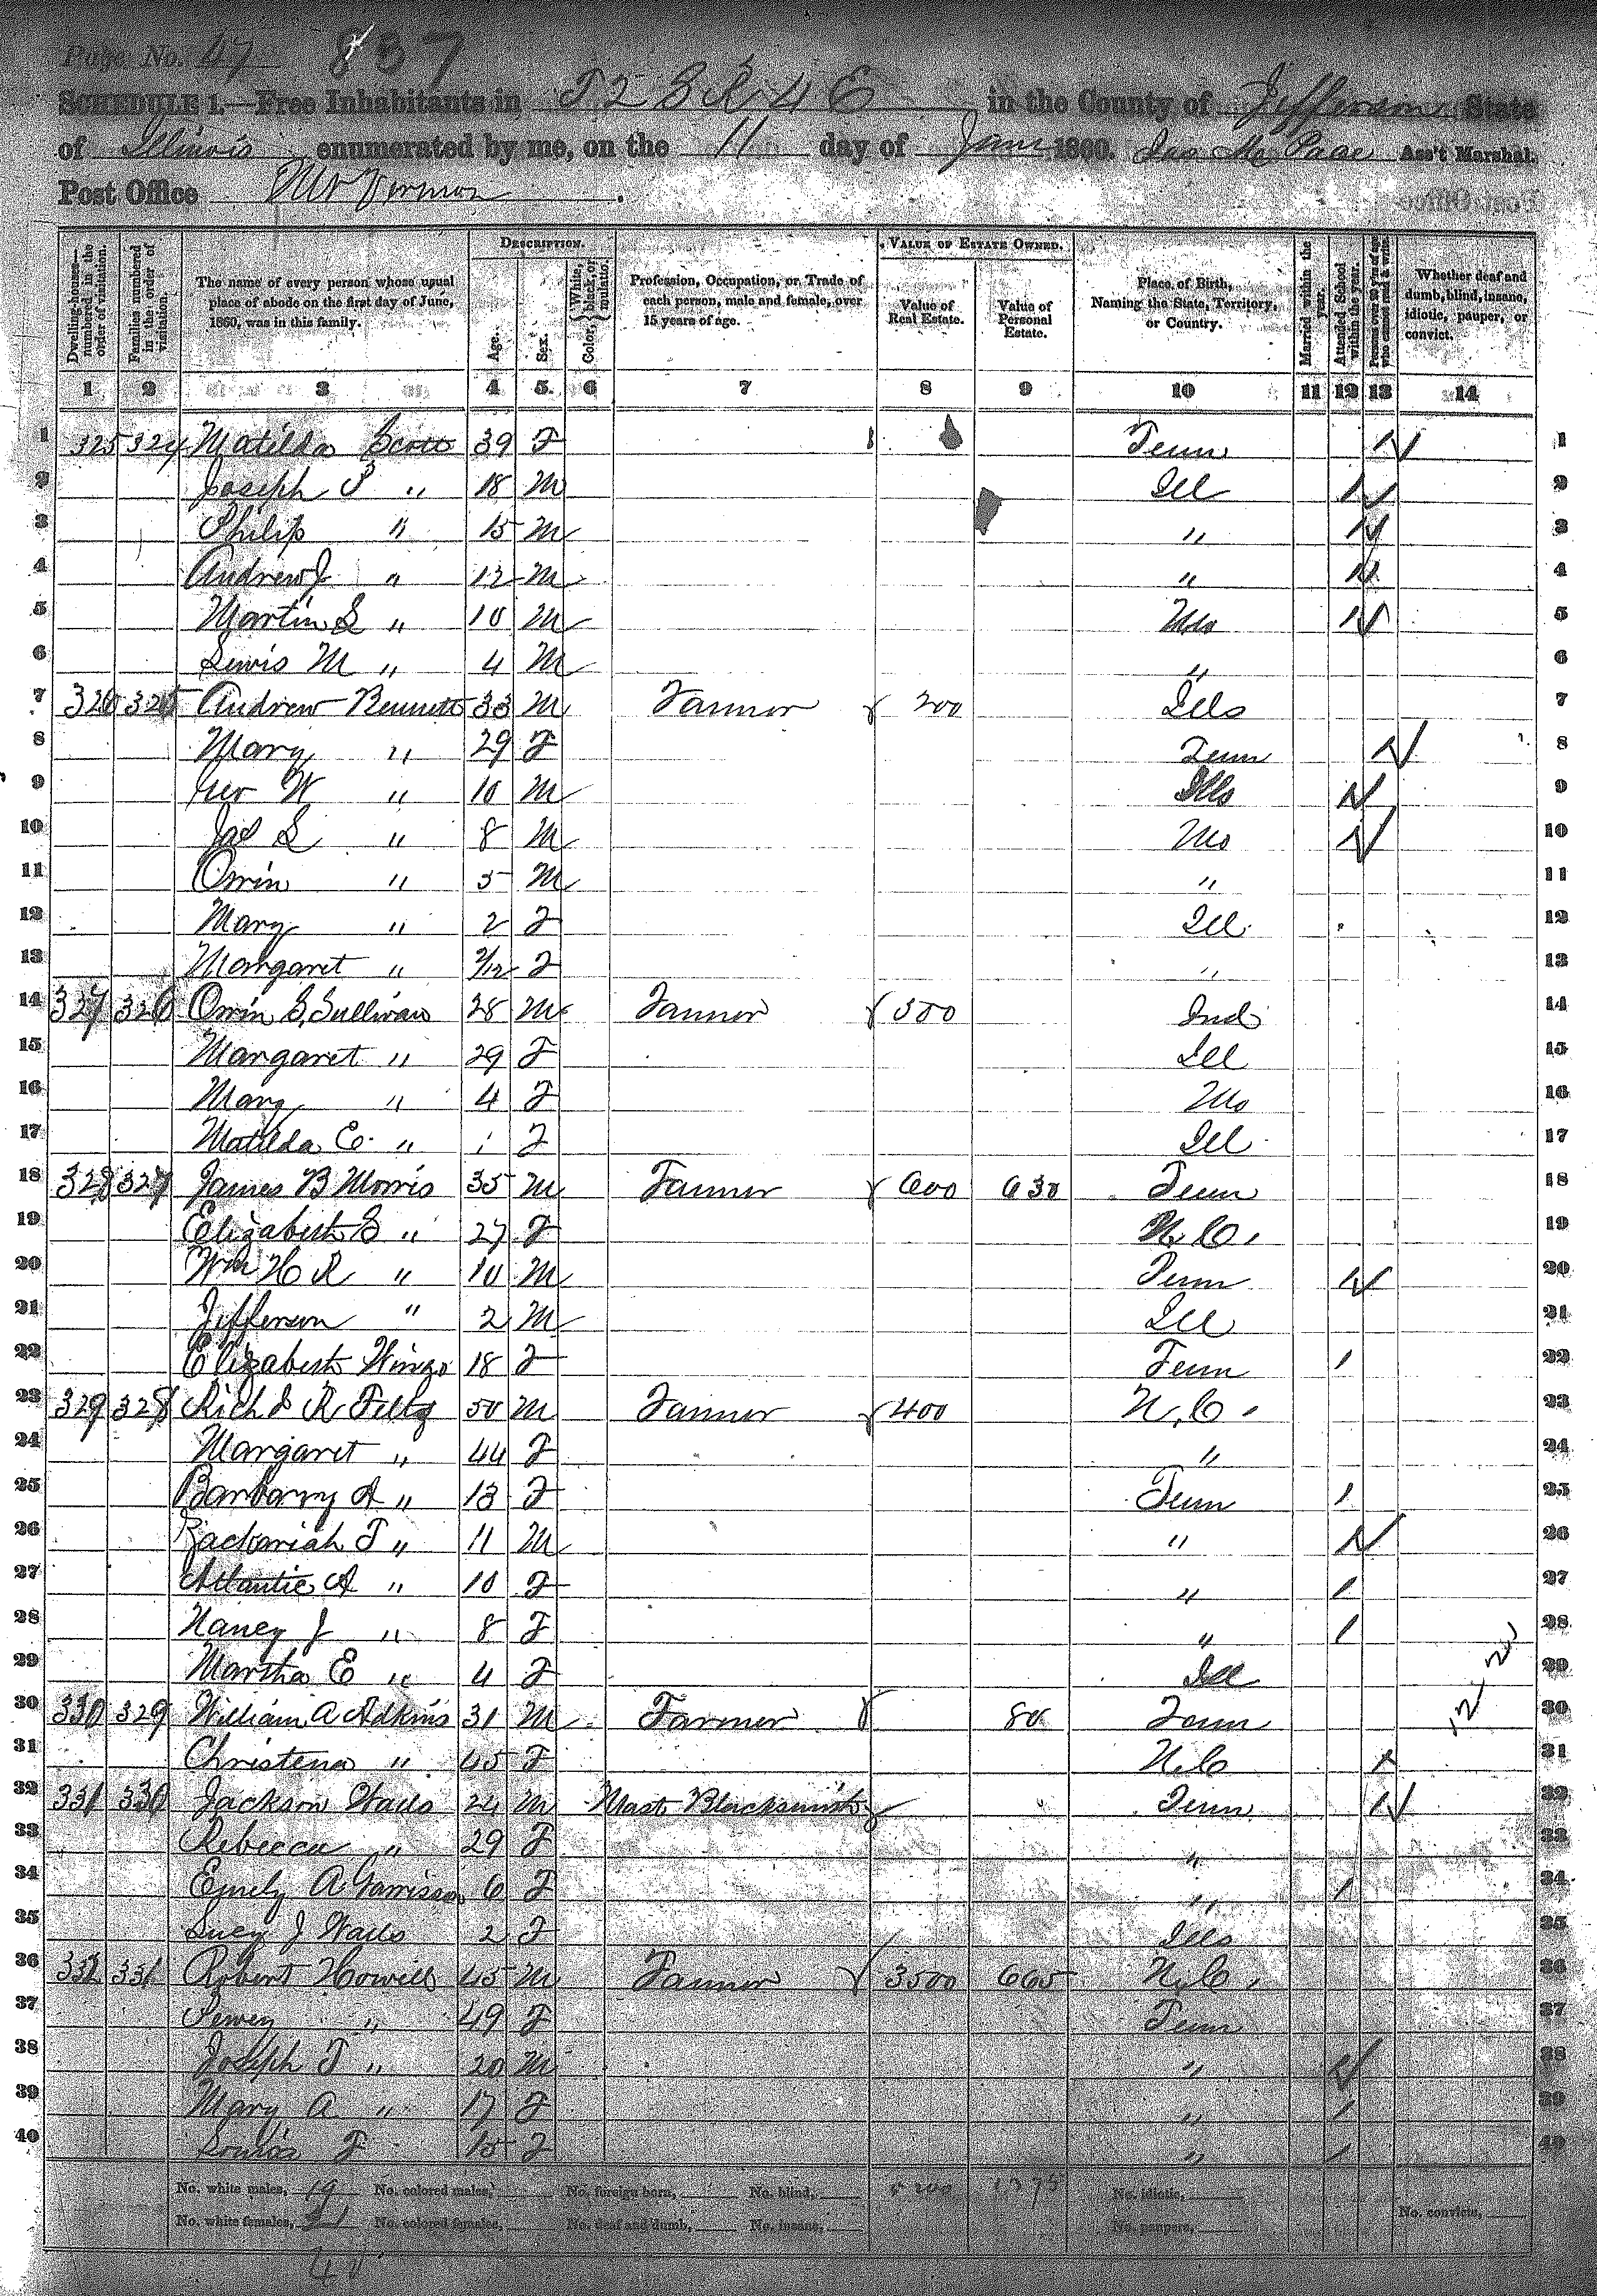 Page No. 47 837
SCHEDULE 1.—Free Inhabitants in T 2 S R 4 E in the County of Jefferson State
of Illinois enumerated by me, on the 11 day of June 1860. Ass't Marshal.
Post Office Mt Vernon
Dwelling-houses—numbered in the order of visitation.
Families numbered in the order of visitation.
The name of every person whose usual place of abode on the first day of June, 1860, was in this family.
DESCRIPTION.
Age.
Sex.
Color, White, black, or mulatto.
Profession, Occupation, or Trade of each person, male and female, over 15 years of age.
VALUE OF ESTATE OWNED.
Value of Real Estate.
Value of Personal Estate.
Place of Birth, Naming the State, Territory, or Country.
Married within the year.
Attended School within the year.
Persons over 20 years of age who cannot read & write.
Whether deaf and dumb, blind, insane, idiotic, pauper, or convict.
1 2 3 4 5 6 7 8 9 10 11 12 13 14
1 325 324 Matilda Scott 39 F Tenn 1 1
2 Joseph P " 18 M Ill 1 2
3 Philip " 15 M " 1 3
4 Andrew J " 12 M " 1 4
5 Martin S " 10 M Mo 1 5
6 Lewis M " 4 M " 6
7 326 325 Andrew Bennett 33 M Farmer 200 Ills 7
8 Mary " 29 F Tenn 1 8
9 Geo W " 10 M Ills 1 9
10 Jas S " 8 M Mo 1 10
11 Orrin " 5 M " 11
12 Mary " 2 F Ill 12
13 Margaret " 2/12 F " 13
14 327 326 Orrin S. Sullivan 28 M Farmer 500 Ind 14
15 Margaret " 29 F Ill 15
16 Mary " 4 F Mo 16
17 Matilda E. " 1 F Ill 17
18 328 327 James B Morris 35 M Farmer 600 630 Tenn 18
19 Elizabeth S " 27 F N. C. 19
20 Wm H R " 10 M Tenn 1 20
21 Jefferson " 2 M Ill 21
22 Elizabeth Wingo 18 F Tenn 1 22
23 329 328 Rich d R Feltz 50 M Farmer 400 N. C. 23
24 Margaret " 44 F " 24
25 Barbary A " 13 F Tenn 1 25
26 Zachariah T " 11 M " 1 26
27 Atlantic A " 10 F " 1 27
28 Nancy J " 8 F " 1 28
29 Martha E " 4 F Ill 29
30 330 329 William A Adkins 31 M Farmer 80 Tenn 30
31 Christena " 45 F N. C 1 31
32 331 330 Jackson Walls 24 M Mast Blacksmith Tenn 1 32
33 Rebecca " 29 F " 33
34 Emely A Garrison 6 F " 1 34
35 Lucy J Walls 2 F Ills 35
36 332 331 Robert Howill 45 M Farmer 3500 665 N. C. 36
37 49 F Tenn 37
38 Joseph T " 20 M " 1 38
39 Mary A " 17 F " 1 39
40 F 15 F " 1 40
No. white males, 19 No. colored males, No. foreign born, No. blind, 5200 1375 No. idiotic,
No. white females, 21 No. colored females, No. deaf and dumb, No. insane, No. paupers, No. convicts,
40